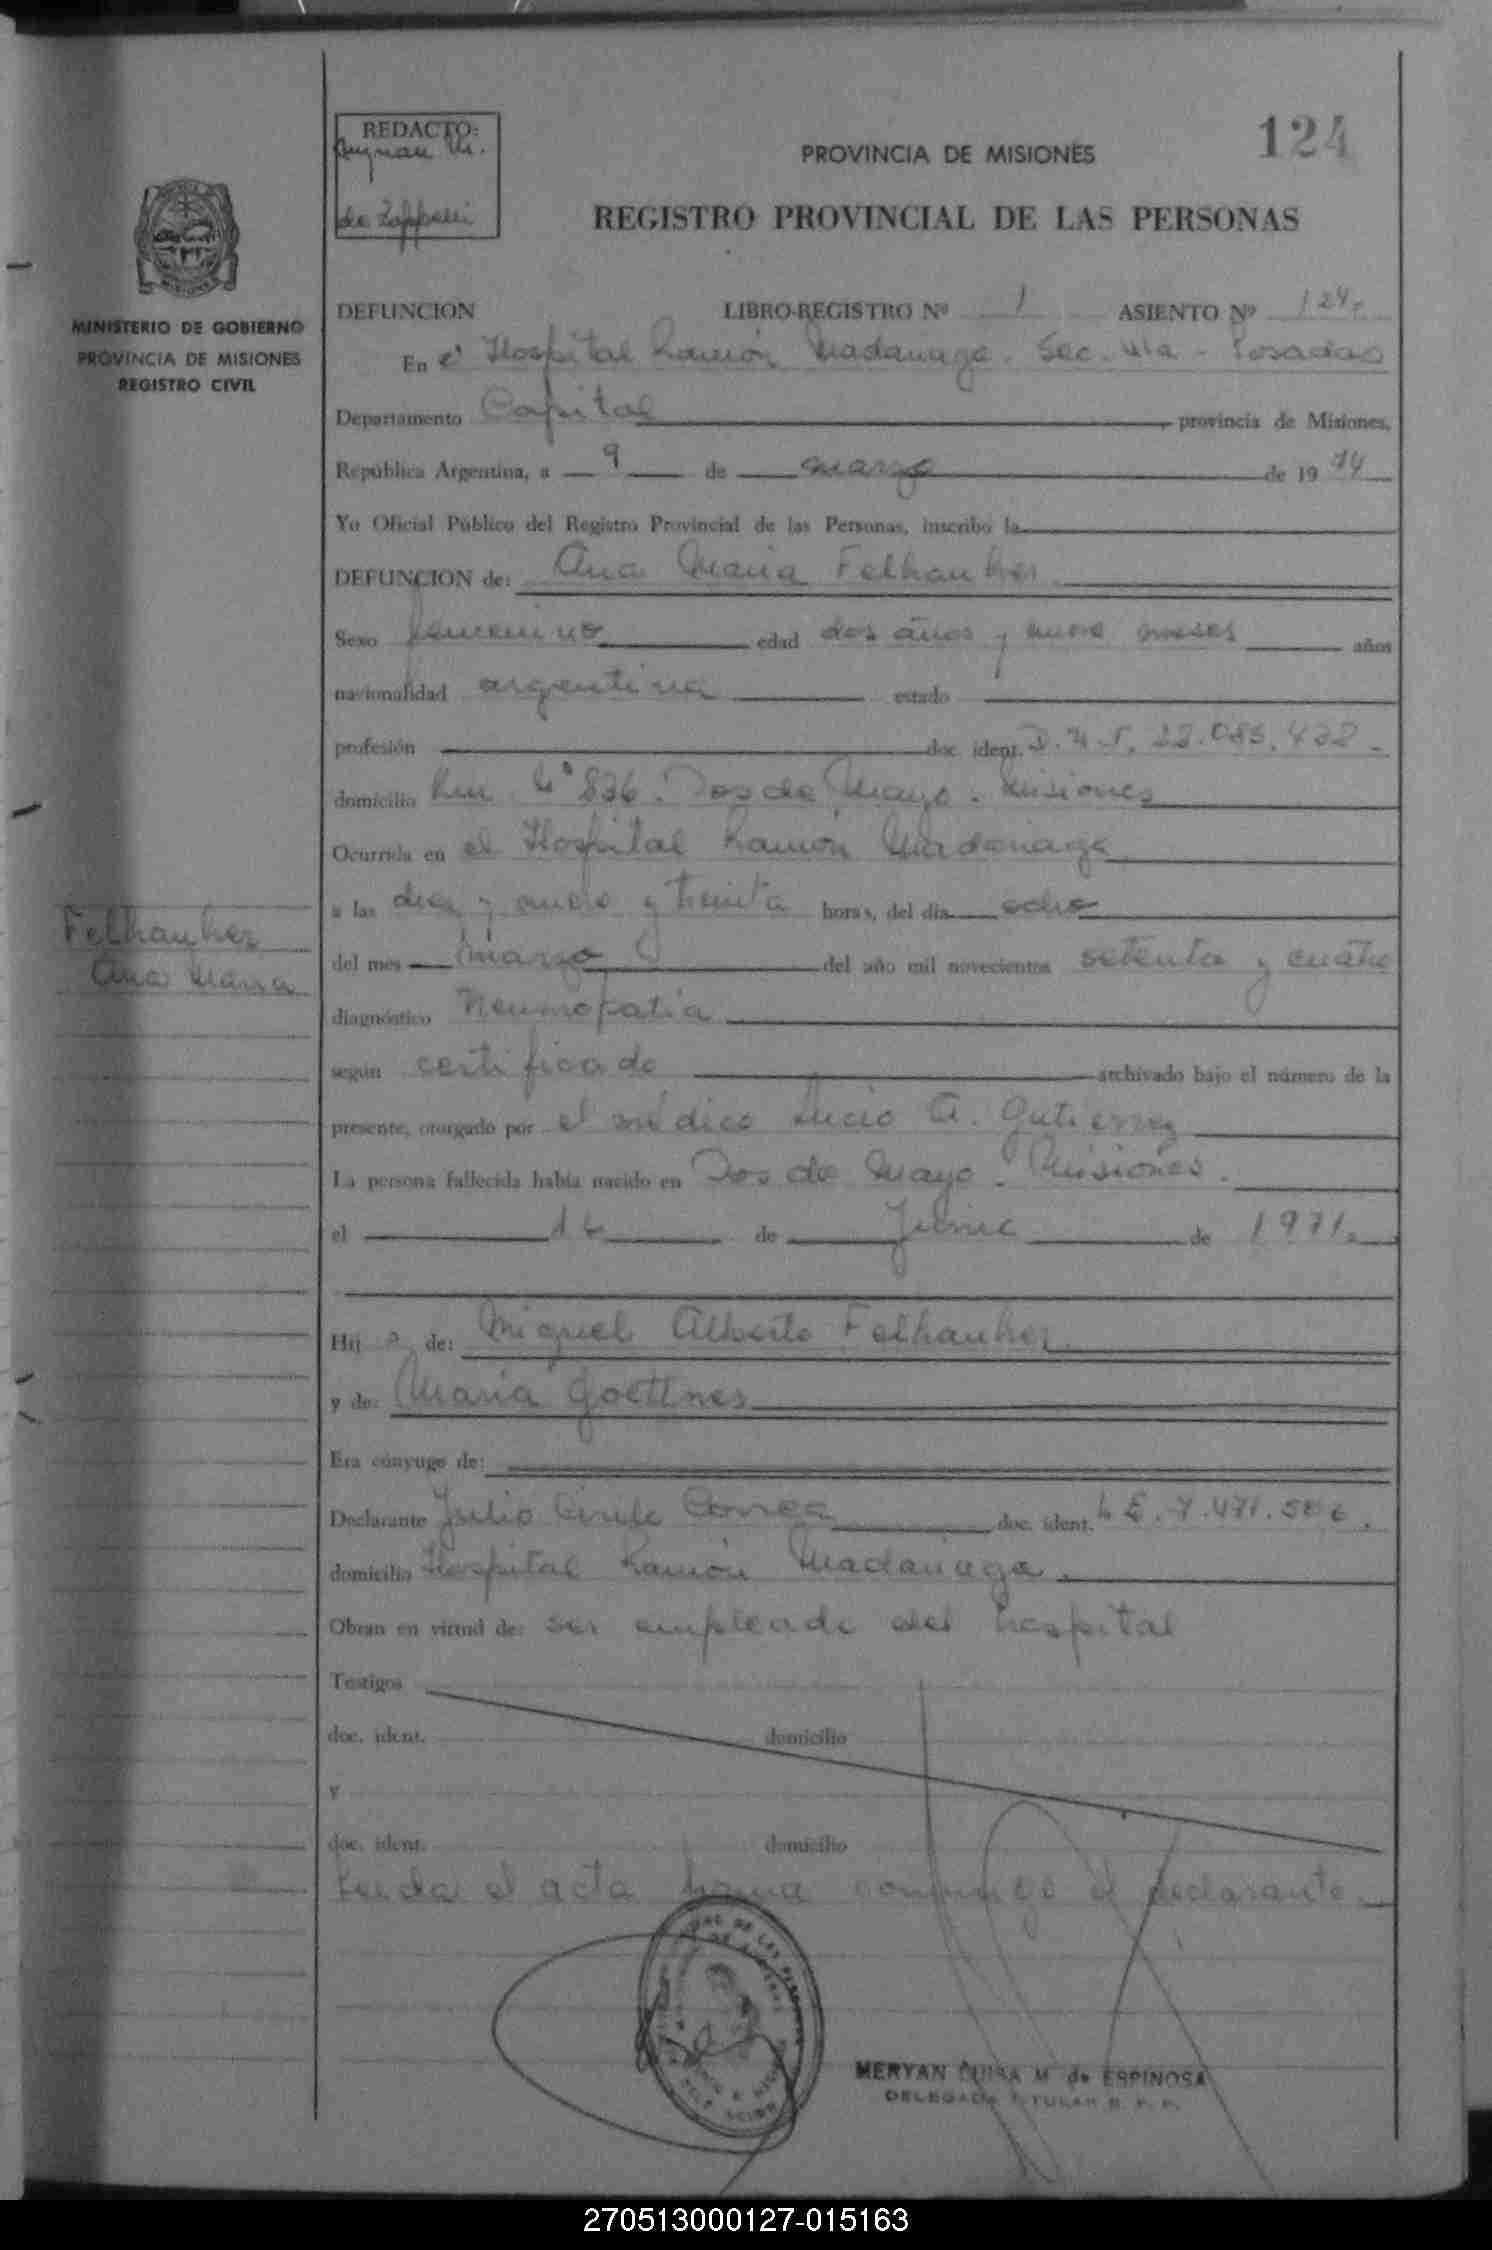 REDACTO:
de Zappelli
PROVINCIA DE MISIONES
124
REGISTRO PROVINCIAL DE LAS PERSONAS
MINISTERIO DE GOBIERNO
PROVINCIA DE MISIONES
REGISTRO CIVIL
DEFUNCION LIBRO-REGISTRO Nº 1 ASIENTO Nº 124.
En el Hospital Ramón Madariaga. Sec. 4ta - Posadas
Departamento Capital provincia de Misiones,
República Argentina, a 9 de marzo de 1974
Yo Oficial Público del Registro Provincial de las Personas, inscribo la
DEFUNCION de: Ana Maria Felhauher
Sexo femenino edad dos años y nueve meses años
nacionalidad argentina estado
profesión doc. ident. D.N.I. 22.085.422.-
domicilio Km Nº 836. Dos de Mayo. Misiones
Ocurrida en el Hospital Ramón Madariaga
a las diez y nueve y treinta horas, del día ocho
del mes marzo del año mil novecientos setenta y cuatro
diagnóstico Neumopatia
según certificado archivado bajo el número de la
presente, otorgado por el médico Lucio A. Gutierrez
La persona fallecida había nacido en Dos de Mayo. Misiones.
el 16 de Junio de 1971.
Hij a de: Miguel Alberto Felhauher
y de: Maria Goettnes
Era cónyuge de:
Declarante Julio Cirilo Correa doc. ident. L.E. 7.471.586.
domicilio Hospital Ramón Madariaga.
Obran en virtud de: ser empleado del hospital
Testigos
doc. ident. domicilio
y
doc. ident. domicilio
Leida el acta firma conmigo el declarante
Felhauher
Ana Maria
MERYAN LUISA M. de ESPINOSA
DELEGADA TITULAR R. P. P.
270513000127-015163